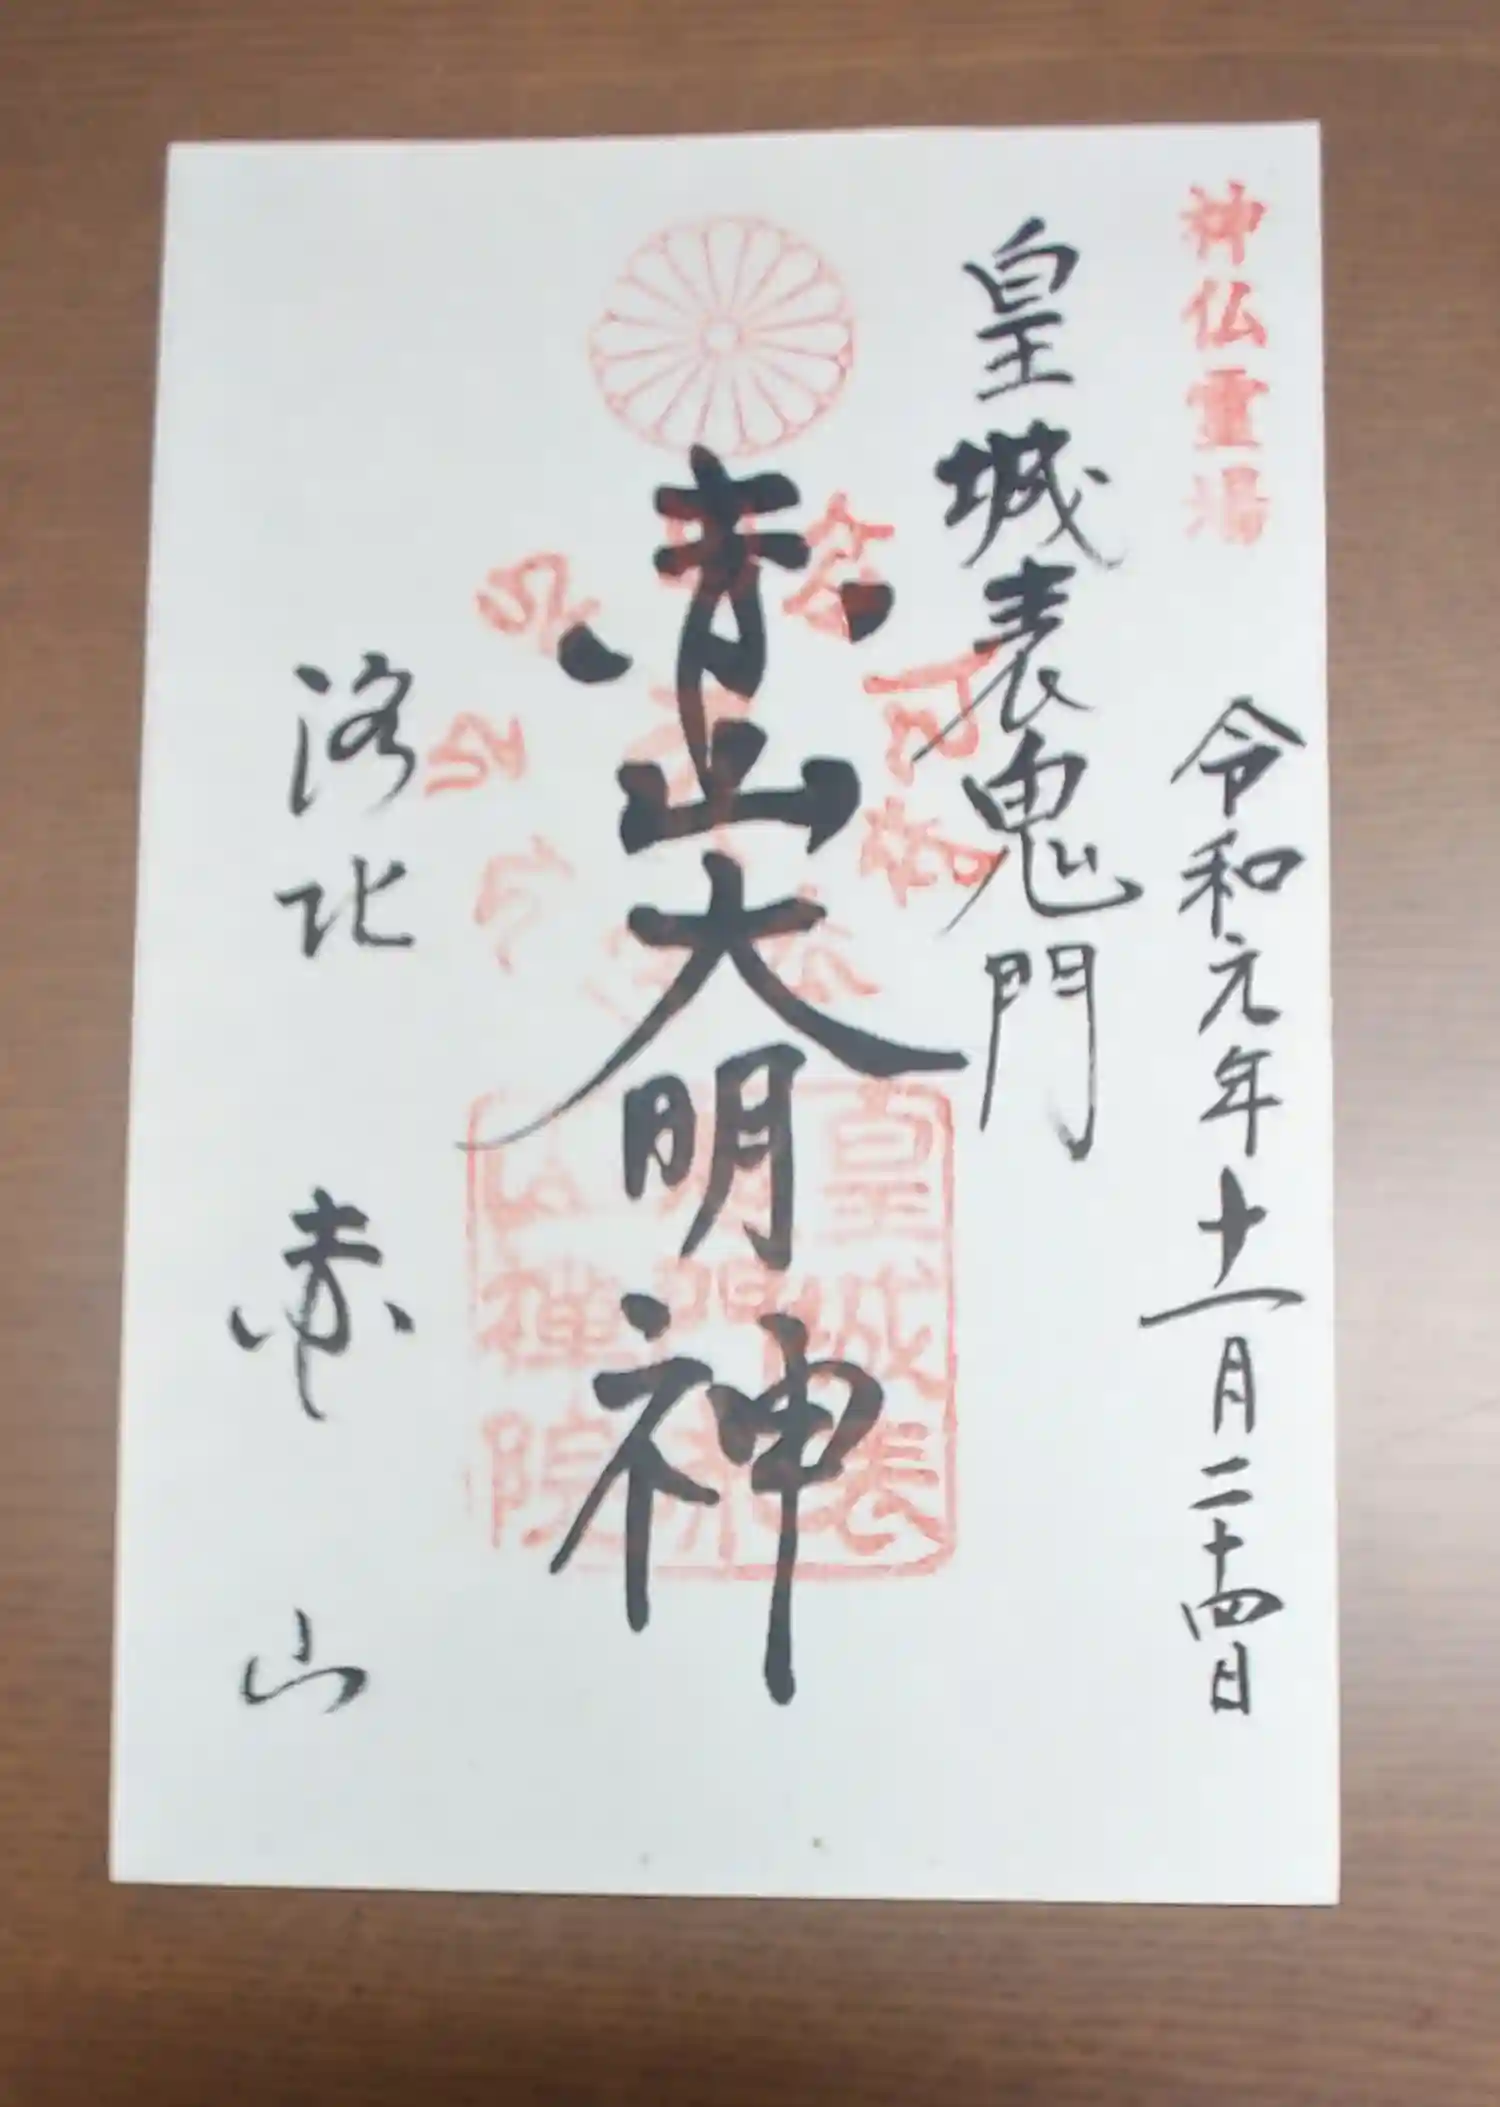 神仏霊場
令和元年十一月二十四日
皇城表鬼門
赤山大明神
洛北 赤山
皇城表
鬼門赤
山禅院